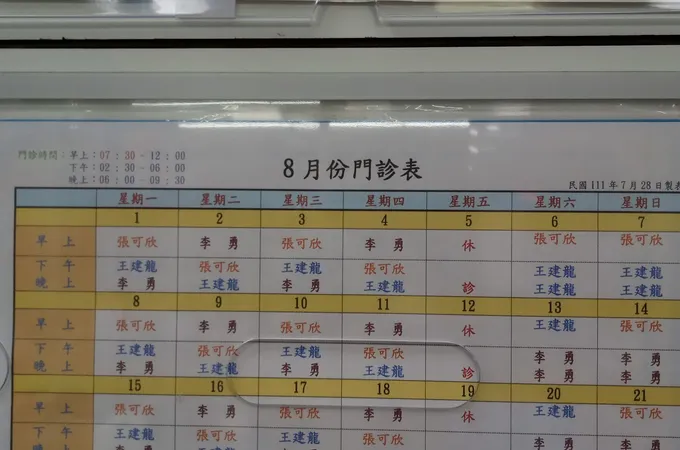 門診時間：早上：07：30－12：00
下午：02：30－06：00
晚上：06：00－09：30
8月份門診表
民國111年7月28日製表
星期一 星期二 星期三 星期四 星期五 星期六 星期日
1 2 3 4 5 6 7
早上 張可欣 李勇 張可欣 李勇 休 張可欣 張可欣
下午 王建龍 張可欣 王建龍 張可欣 王建龍 王建龍
晚上 李勇 王建龍 李勇 王建龍 診 王建龍 王建龍
8 9 10 11 12 13 14
早上 張可欣 李勇 張可欣 李勇 休 王建龍 張可欣
下午 王建龍 張可欣 王建龍 張可欣 李勇 李勇
晚上 李勇 王建龍 李勇 王建龍 診 李勇 李勇
15 16 17 18 19 20 21
早上 張可欣 李勇 張可欣 李勇 休 王建龍 張可欣
下午 王建龍 張可欣 王建龍 張可欣 李勇 李勇